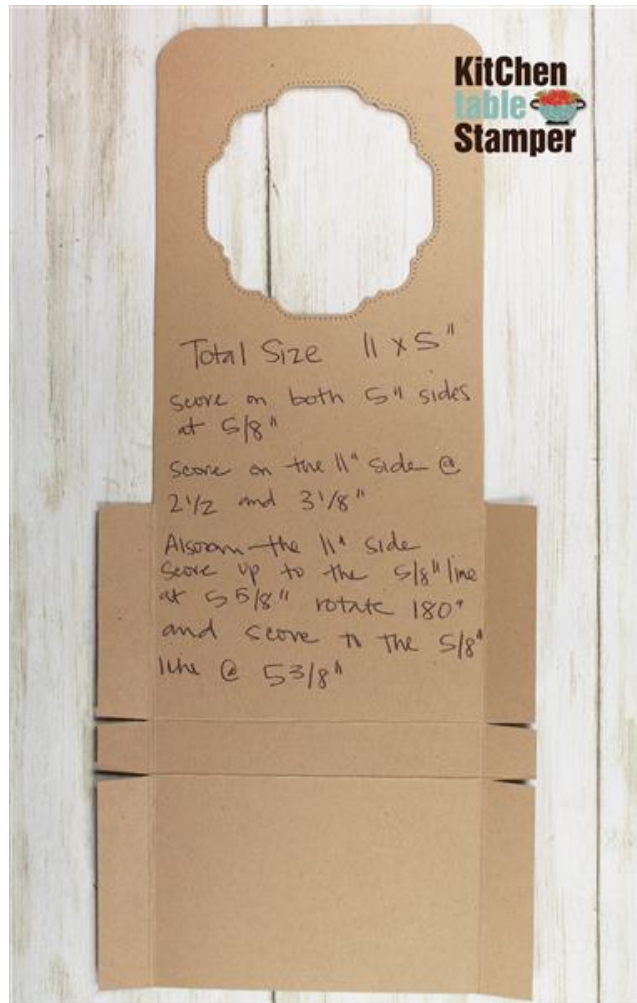 KitChen
table
Stamper
Total Size 11 x 5"
score on both 5" sides
at 5/8"
score on the 11" side @
2 1/2 and 3 1/8"
Also on the 11" side
score up to the 5/8" line
at 5 5/8" rotate 180°
and score to the 5/8"
line @ 5 3/8"